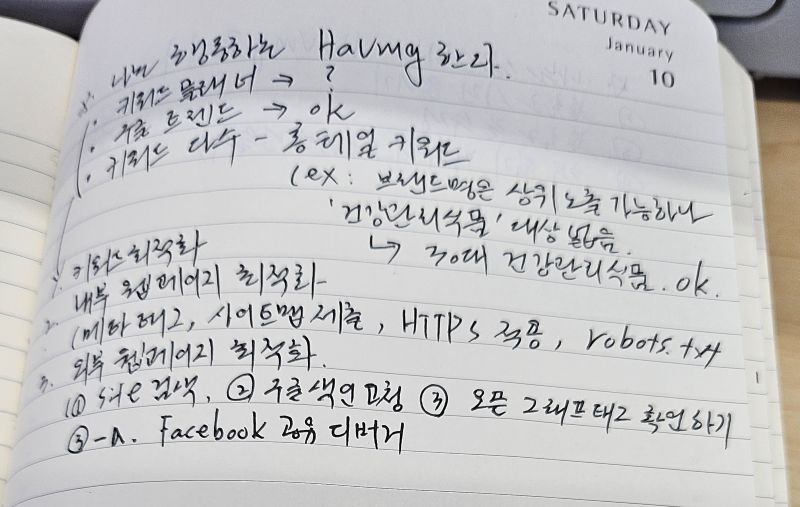 SATURDAY
January
10
나는 행동하는 Having 한다.
· 키워드 플래너 → ?
· 구글 트렌드 → ok
· 키워드 다수 - 롱테일 키워드
(ex: 브랜드명은 상위노출 가능하나
'건강관리식품' 대상 넓음.
↳ 30대 건강관리식품. ok.
1. 키워드최적화
2. 내부 웹페이지 최적화
(메타태그, 사이트맵 제출, HTTPs 적용, robots.txt
3. 외부 웹페이지 최적화.
(① site 검색, ② 구글색인요청 ③ 오픈 그래프태그 확인하기
③-a. Facebook 공유 디버거